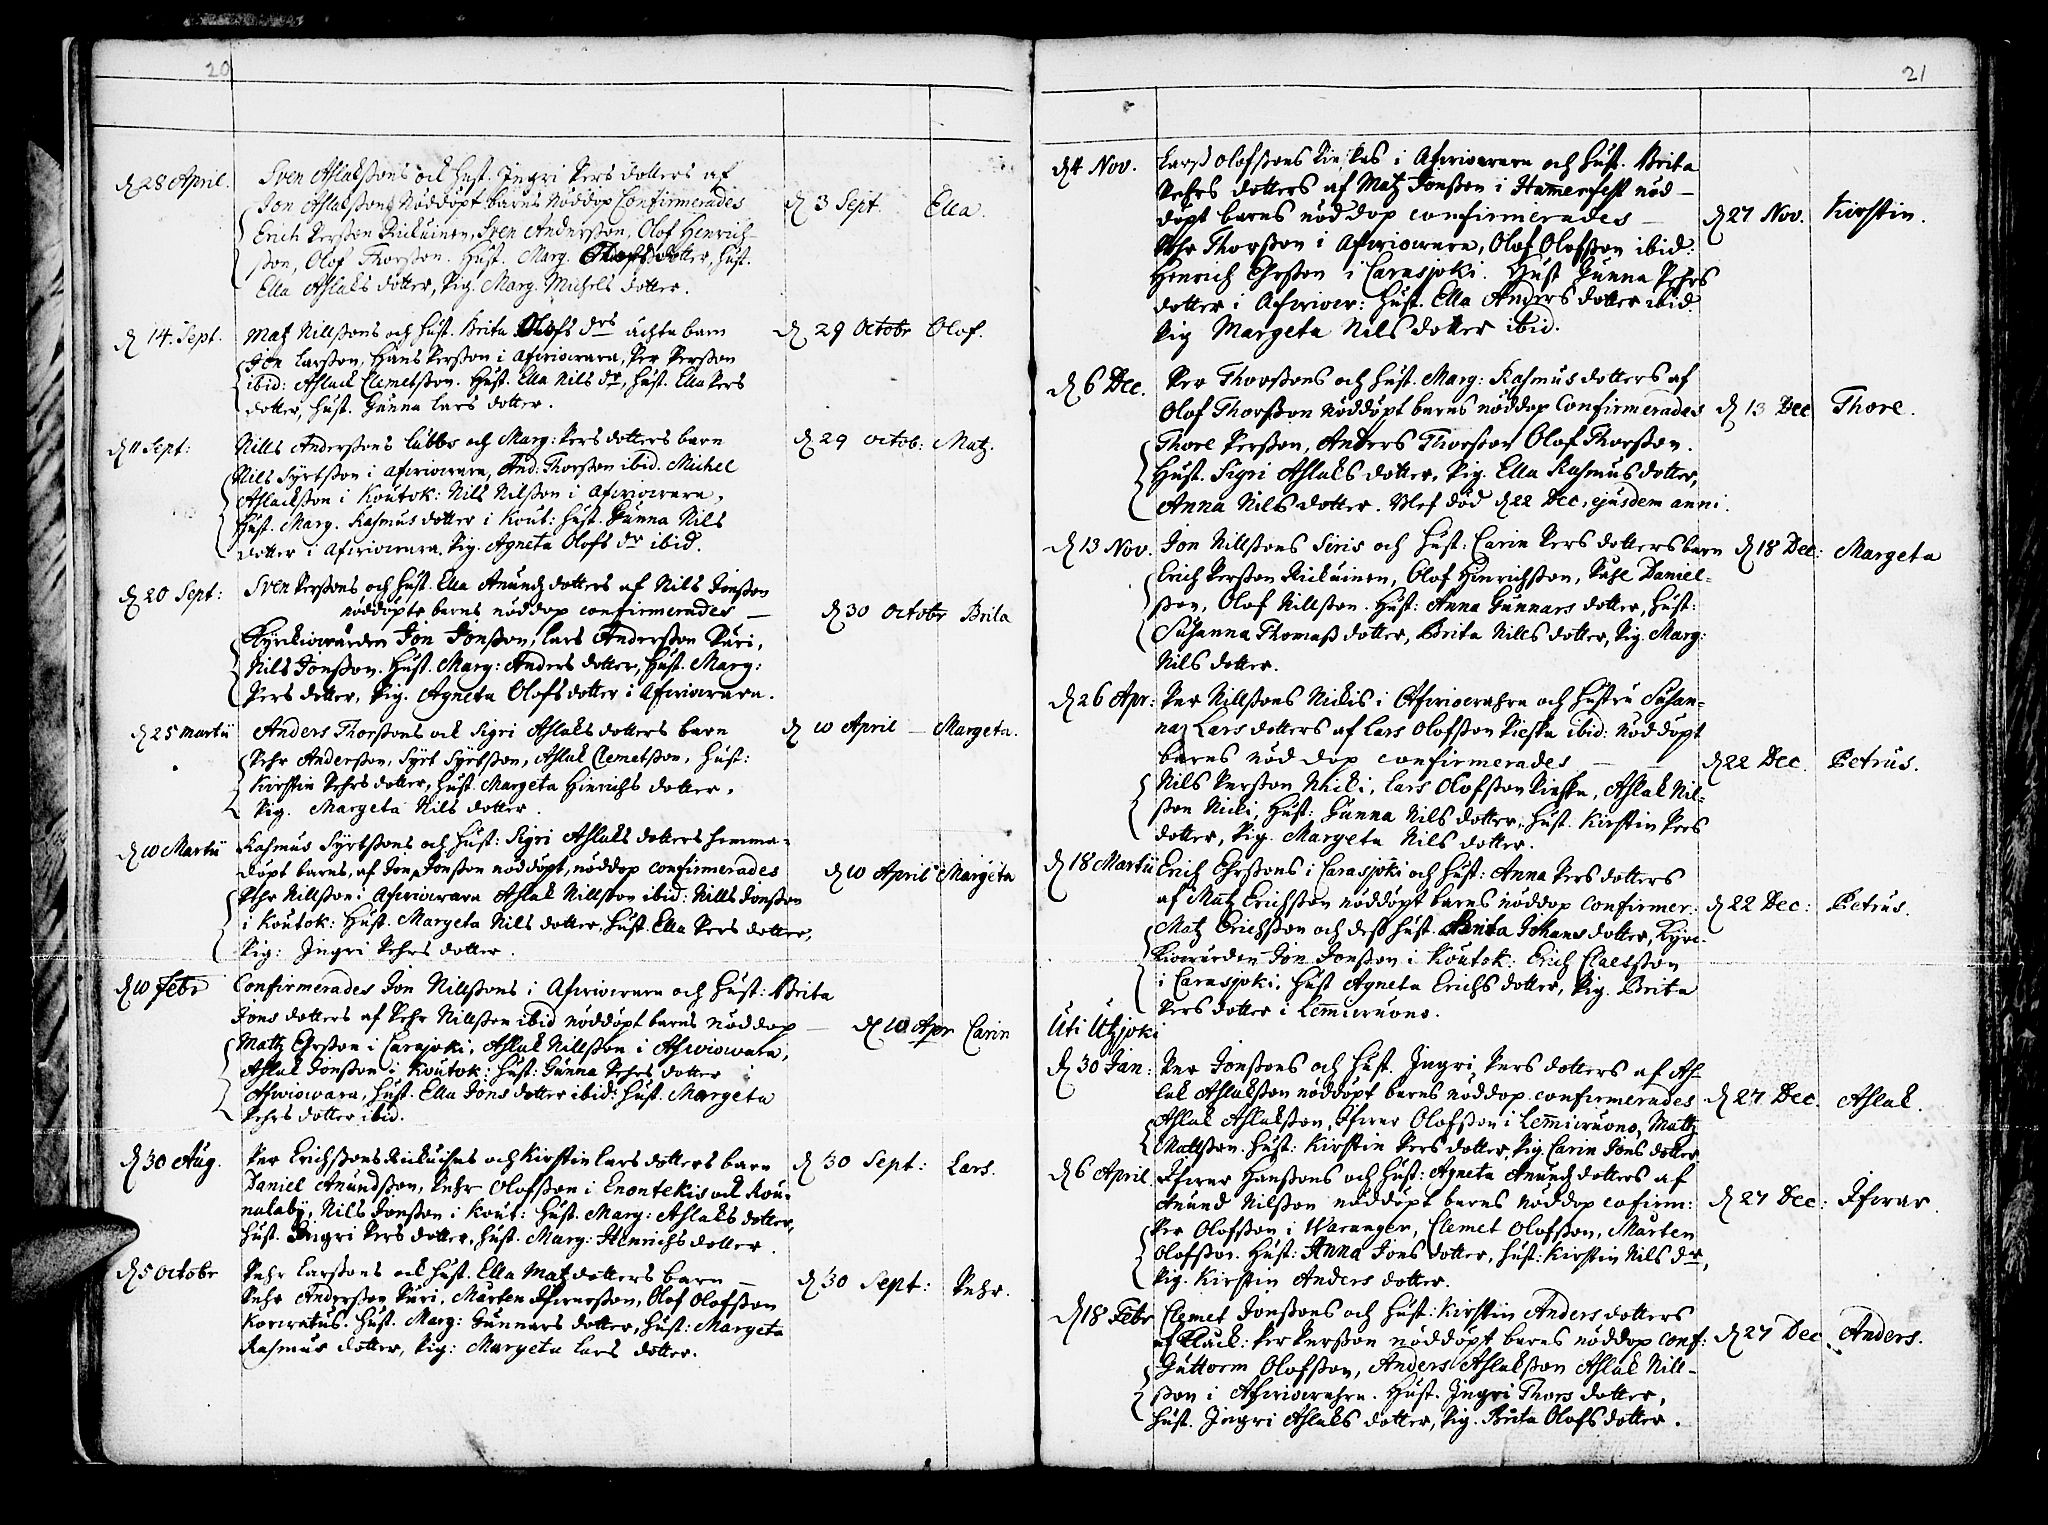 20
d 28 April. Sven Aslakssons ock Hust. Jngri Pers dotters af
Jon Aslakssons nöddöpt barns nöddop Confirmerades d 3 Sept. Ella.
Erich Persson Rickuinen, Sven Andersson, Olof Henrich-
sson, Olof Thorsson. Hust. Marg. dotter, Hust.
Ella Aslaks dotter, Pig. Marg. Michels dotter.
d 14. Sept. Matz Nillssons och Hust. Brita Olofs drs ächta barn d 29 Octobr Olof.
Jon Larsson, Hans Persson i Afwiowara, Per Persson
ibid: Aslack Clemetsson. Hust. Ella Nils dr, Hust. Ella Pers
dotter, Hust. Gunna Lars dotter.
d 11 Sept: Nills Anderssons Lubbs och Marg: Pers dotters barn d 29 octob: Matz.
Nils Syrtsson i Afwiowara, And: Thorsson ibid. Michel
Aslacksson i Koutok: Nils Nilsson i Afwiowara,
Hust. Marg. Rasmus dotter i Kout: Hust. Gunna Nils
dotter i Afwiowara. Pig. Agneta Olofs dr ibid.
d 20 Sept: Sven Perssons och Hust. Ella Anundz dotters af Nils Jonsson
nöddöpte barns nöddop confirmerades d 30 Octobr Brita
Kyrckiowärden Jon Jonsson, Lars Andersson Puri,
Nils Jonsson. Hust. Marg: Anders dotter, Hust. Marg:
Pers dotter, Pig. Agneta Olofs dotter i Afwiowara.
d 25 Martii Anders Thorssons ock Sigri Aslaks dotters barn d 10 April Margeta.
Pehr Andersson, Syrt Syrtsson, Aslak Clemetsson, Hust:
Kirstin Pehrs dotter, Hust. Margeta Hinrichs dotter,
Pig. Margeta Nils dotter.
d 10 Martii Rasmus Syrtssons och Hust: Sigri Aslaks dotters hemma-
döpt barns, af Jon Jonsson nöddöpt, nöddop confirmerades d 10 April Margeta
Pehr Nillsson i Afwiowara Aslak Nillsson ibid: Nills Jonsson
i Koutok: Hust. Margeta Nils dotter, Hust. Ella Pers dotter,
Pig: Jngri Pehrs dotter.
d 10 Febr Confirmerades Jon Nillssons i Afwiowara och Hust: Brita
Jons dotters af Pehr Nillsson ibid nöddöpt barns nöddop d 10 Apr Carin
Mattz Ehrsson i Carasjoki, Aslak Nillsson i Afwiowara,
Aslak Jonsson i Koutok: Hust: Gunna Pehrs dotter i
Afwiowara, Hust. Ella Jons dotter ibid: Hust. Margeta
Pehrs dotter ibid.
d 30 Aug. Per Erichssons Rickuines och Kirstin Lars dotters barn d 30 Sept: Lars.
Daniel Anundsson, Pehr Olofsson i Enontekis ock Rou-
nalaby, Nils Jonsson i Kout: Hust. Marg: Aslaks dotter,
Hust. Jngri Pers dotter, Hust. Marg: Henrichs dotter.
d 5 Octobr Pehr Larssons ock Hust. Ella Matz dotters barn d 30 Sept: Pehr.
Pehr Andersson Puri, Mårten Ifwersson, Olof Olofsson
Korwatus. Hust. Marg: Gunnars dotter, Hust: Margeta
Rasmus dotter, Pig: Margeta Lars dotter.
21
d 4 Nov. Larss Olofssons Pieskas i Afwiowara och Hust. Brita
Pehrs dotters af Matz Jonsson i Hamerfest nöd-
döpt barns nöddop confirmerades d 27 Nov. Kirstin.
Pehr Thorsson i Afwiowara, Olof Olofsson ibid:
Henrich Ehrsson i Carasjoki. Hust Gunna Pehrs
dotter i Afwiowar: Hust. Ella Anders dotter ibid.
Pig Margeta Nils dotter ibid.
d 6 Dec. Per Thorssons och Hust. Marg: Rasmus dotters af
Olof Thorsson nöddöpt barns nöddop Confirmerades d 13 Dec Thore.
Thore Persson, Anders Thorsson Olof Thorsson.
Hust. Sigri Aslaks dotter, Pig. Ella Rasmus dotter,
Anna Nils dotter. Blef död d 22 Dec. ejusdem anni.
d 13 Nov. Jon Nillssons Siris och Hust: Carin Pers dotters barn d 18 Dec: Margeta
Erich Persson Rickuinen, Olof Hinrichsson, Pähl Daniel-
sson, Olof Nillsson. Hust: Anna Gunnars dotter, Hust:
Susanna Thomass dotter, Brita Nills dotter, Pig. Marg:
Nils dotter.
d 26 Apr: Per Nillssons Nickis i Afwiowahra och Hustru Susan-
næ Lars dotters af Lars Olofsson Pieska ibid: nöddöpt
barns nöd dop confirmerades d 22 Dec. Petrus.
Nils Persson Nicki, Lars Olofsson Pieska, Aslak Nil-
sson Nicki, Hust: Gunna Nils dotter, Hust. Kirstin Pers
dotter, Pig. Margeta Nils dotter.
d 18 Martii Erich Ehrssons i Carasjoki och Hust: Anna Pers dotters
af Matz Erichsson nöddöpt barns nöddop confirmer: d 22 Dec: Petrus.
Matz Erichsson och dess Hust. Brita Johans dotter, Kyrc-
kiowärden Jon Jonsson i Koutok: Erich Claesson
i Carasjoki. Hust Agneta Erichs dotter, Pig. Brita
Pers dotter i Lemmiwuono.
Uti Utzjoki
d 30 Jan: Per Jonssons och Hust. Jngri Pers dotters af As-
lak Aslaksson nöddöpt barns nöddop confirmerades d 27 Dec. Aslak.
Aslak Aslaksson, Ifwar Olofsson i Lemmiwuono, Mattz
Mattsson. Hust: Kirstin Pers dotter, Pig. Carin Jons dotter
d 6 April. Ifwar Hanssons och Hust: Agneta Anundz dotters af
Anund Nilsson nöddöpt barns nöddop cofirm: d 27 Dec: Ifwar.
Per Olofsson i Waranger, Clemet Olofsson, Mårten
Olofsson. Hust: Anna Jons dotter, Hust: Kirstin Nils dr,
Pig. Kirstin Anders dotter.
d 18 Febr Clemet Jonssons och Hust: Kirstin Anders dotters
af Per Persson nöddöpt barns nöddop conf: d 27 Dec Anders.
Guttorm Olofsson, Anders Aslaksson Aslak Nill-
sson i Afwiowahra. Hust. Jngri Thors dotter,
Hust. Jngri Aslaks dotter, Pig. Brita Olofs dotter.